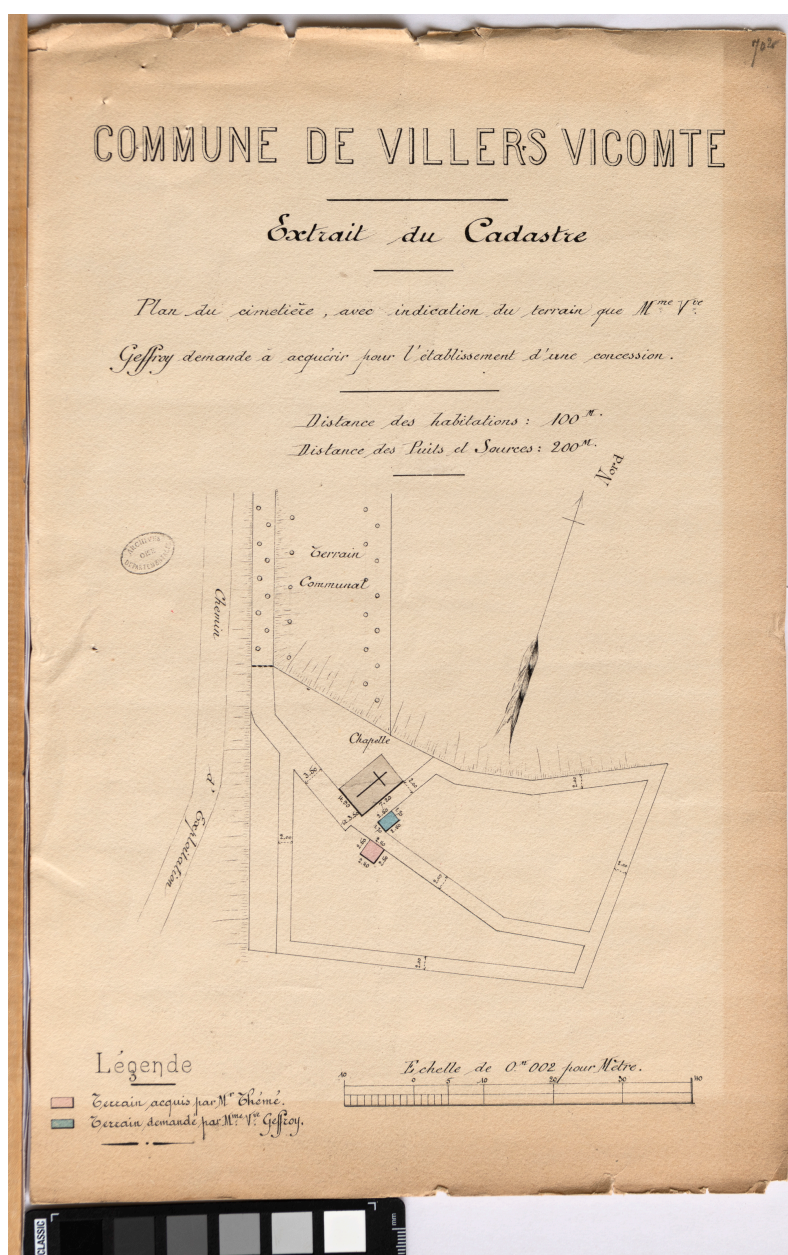 70 bis
COMMUNE DE VILLERS VICOMTE
Extrait du Cadastre
Plan du cimetière, avec indication du terrain que Mme Vve
Geffroy demande à acquérir pour l'établissement d'une concession.
Distance des habitations : 100 M.
Distance des Puits et Sources : 200 M.
Nord
ARCHIVES
DÉPARTEMENTALES
Terrain
Communal
Chemin
d'
Exploitation
Chapelle
3.50
2.00
2.00
2.00
2.00
2.00
Légende
Terrain acquis par Mr Thémé.
Terrain demandé par Mme Vve Geffroy.
Echelle de 0m 002 pour Mètre.
10 0 5 10 20 30 40
CLASSIC
mm